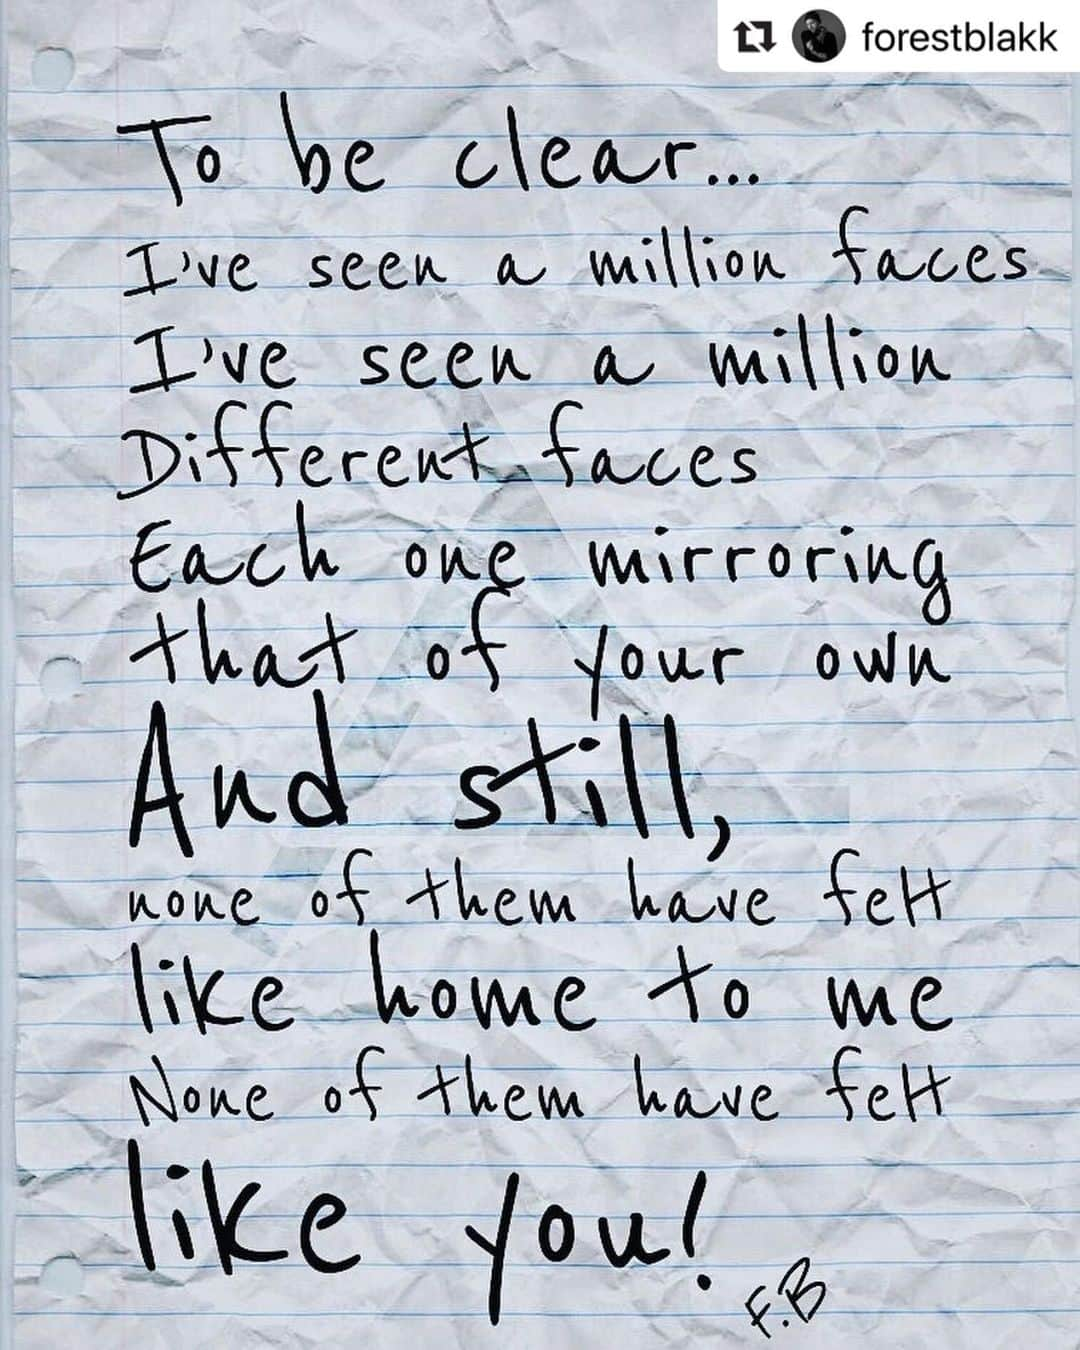 forestblakk
To be clear...
I've seen a million faces
I've seen a million
Different faces
Each one mirroring
that of your own
And still,
none of them have felt
like home to me
None of them have felt
like you!
F.B